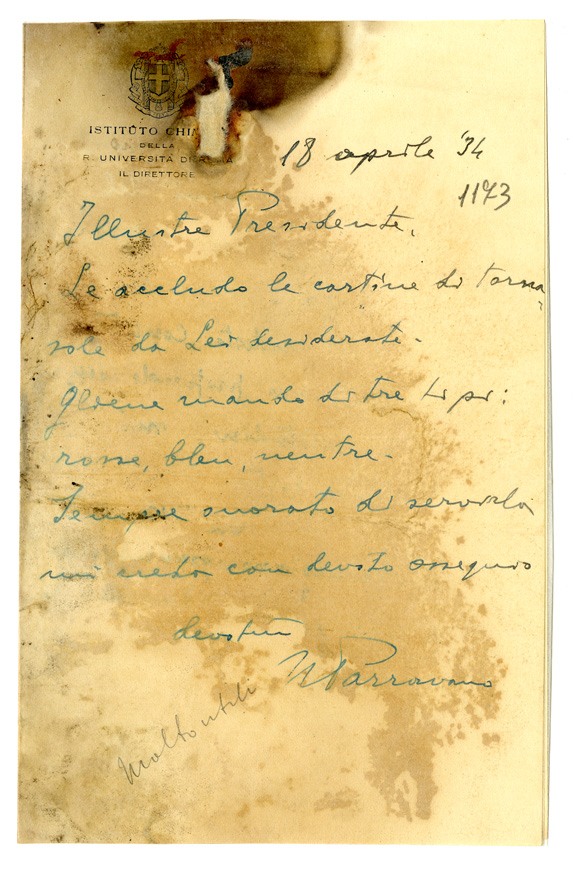 ISTITUTO CHI
DELLA
R. UNIVERSITÀ DI
IL DIRETTORE
18 aprile '34
1173
Illustre Presidente,
Le accludo le cartine di torna-
sole da Lei desiderate.
Gliene mando di tre tipi:
rosse, bleu, neutre.
Sempre onorato di servirla
mi creda con devoto ossequio
devotmo
N Parravano
Molto utili